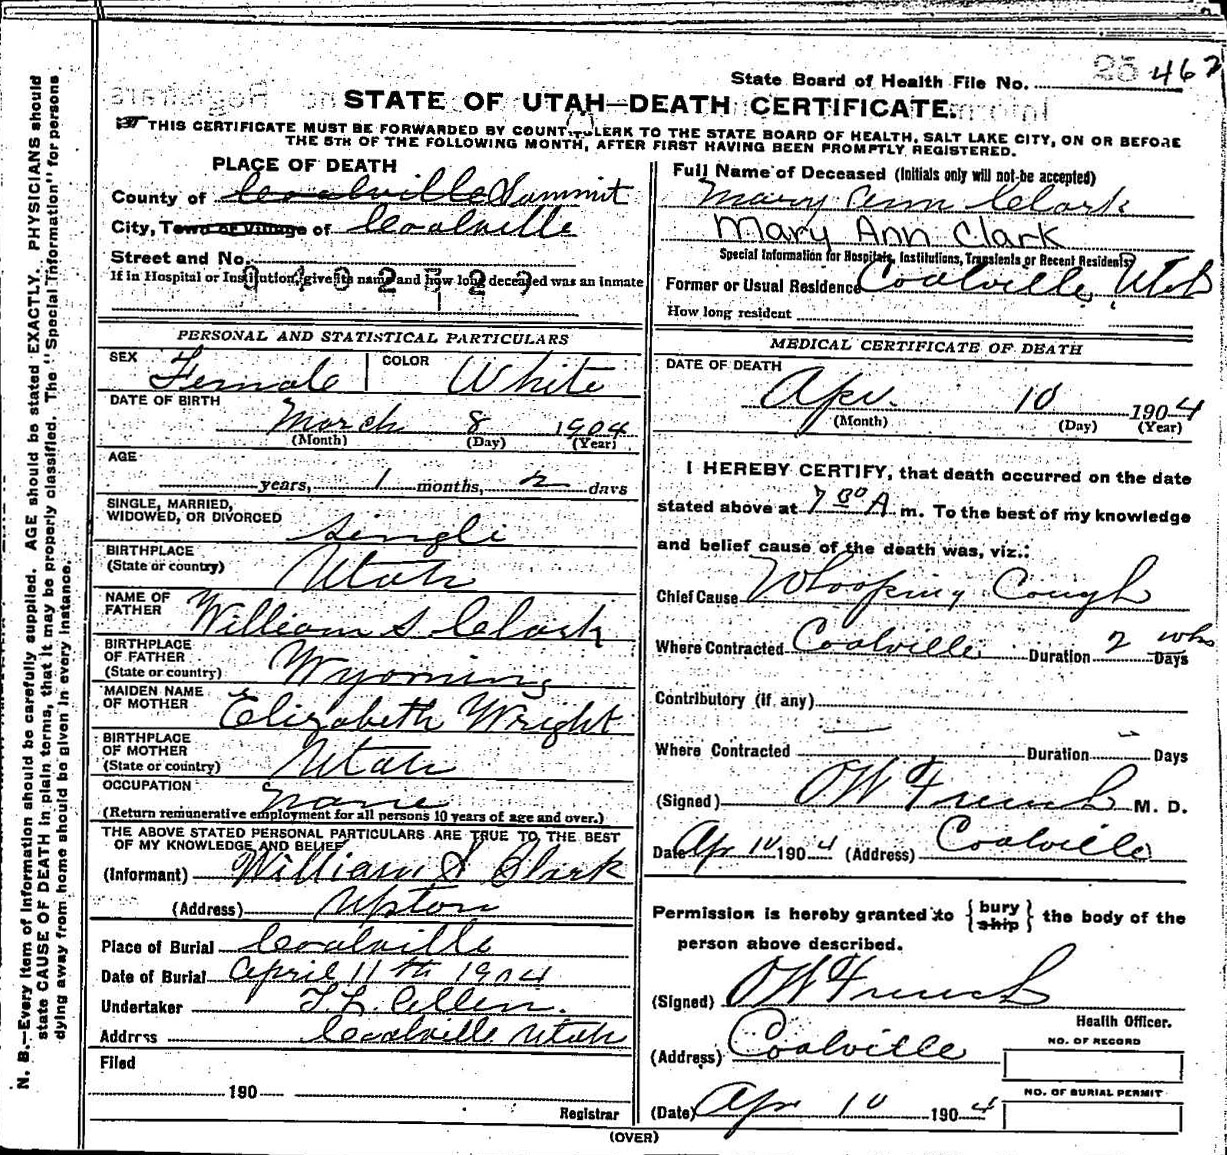 State Board of Health File No. 25 462
STATE OF UTAH—DEATH CERTIFICATE.
THIS CERTIFICATE MUST BE FORWARDED BY COUNTY CLERK TO THE STATE BOARD OF HEALTH, SALT LAKE CITY, ON OR BEFORE
THE 5TH OF THE FOLLOWING MONTH, AFTER FIRST HAVING BEEN PROMPTLY REGISTERED.
PLACE OF DEATH
County of Coalville Summit
City, Town or Village of Coalville
Street and No.
If in Hospital or Institution, give its name and how long deceased was an inmate
PERSONAL AND STATISTICAL PARTICULARS
SEX Female COLOR White
DATE OF BIRTH
March 8 1904
(Month) (Day) (Year)
AGE
years, 1 months, 2 days
SINGLE, MARRIED,
WIDOWED, OR DIVORCED single
BIRTHPLACE
(State or country) Utah
NAME OF
FATHER William S Clark
BIRTHPLACE
OF FATHER
(State or country) Wyoming
MAIDEN NAME
OF MOTHER Elizabeth Wright
BIRTHPLACE
OF MOTHER
(State or country) Utah
OCCUPATION none
(Return remunerative employment for all persons 10 years of age and over.)
THE ABOVE STATED PERSONAL PARTICULARS ARE TRUE TO THE BEST
OF MY KNOWLEDGE AND BELIEF
(Informant) William S Clark
(Address) Upton
Place of Burial Coalville
Date of Burial April 11th 1904
Undertaker T.L. Allen.
Address Coalville Utah
Filed
190
Registrar
Full Name of Deceased (Initials only will not be accepted)
Mary Ann Clark
Mary Ann Clark
Special Information for Hospitals, Institutions, Transients or Recent Residents
Former or Usual Residence Coalville, Utah
How long resident
MEDICAL CERTIFICATE OF DEATH
DATE OF DEATH
Apr. 10 1904
(Month) (Day) (Year)
I HEREBY CERTIFY, that death occurred on the date
stated above at 7 00 A m. To the best of my knowledge
and belief cause of the death was, viz.:
Chief Cause Whooping Cough
Where Contracted Coalville Duration 2 wks Days
Contributory (if any)
Where Contracted Duration Days
(Signed) O W French M. D.
Date Apr 10 1904 (Address) Coalville
Permission is hereby granted to {bury ship} the body of the
person above described.
(Signed) O W French
Health Officer.
(Address) Coalville
NO. OF RECORD
NO. OF BURIAL PERMIT
(Date) Apr 10 1904
(OVER)
N. B.—Every item of information should be carefully supplied. AGE should be stated EXACTLY. PHYSICIANS should
state CAUSE OF DEATH in plain terms, that it may be properly classified. The "Special Information" for persons
dying away from home should be given in every instance.